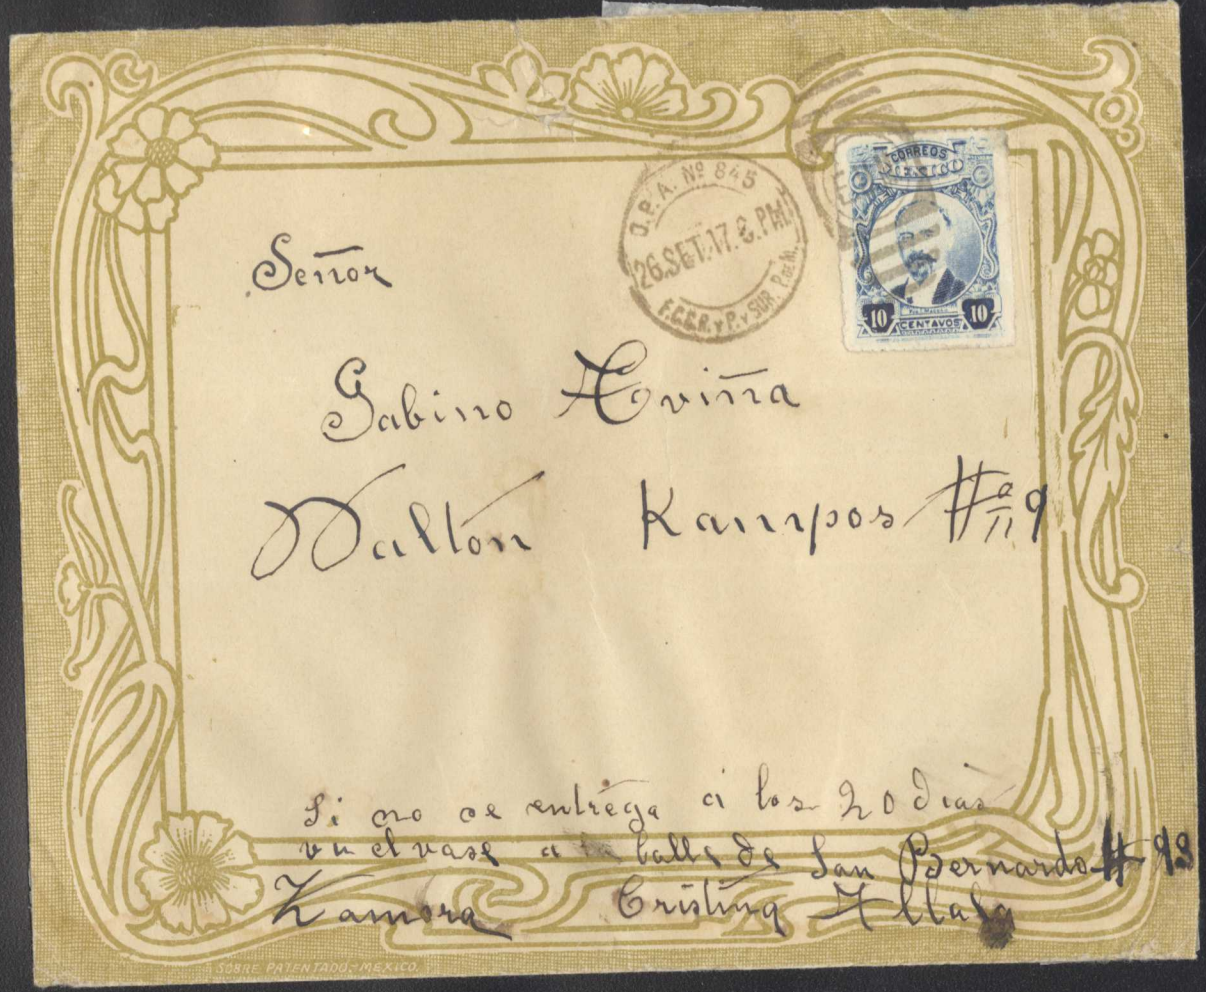 O.P.A. Nº 845
26.SET.17.8.PM.
F.C.E.R. y P. y SUR. P. de N.
CORREOS
MEXICO
10 CENTAVOS 10
Señor
Gabino Aviña
Dalton Kampos # 9
Si no se entrega a los 20 dias
vuelvase a la calle de San Bernardo # 93
Zamora Cristina
SOBRE PATENTADO.-MEXICO.